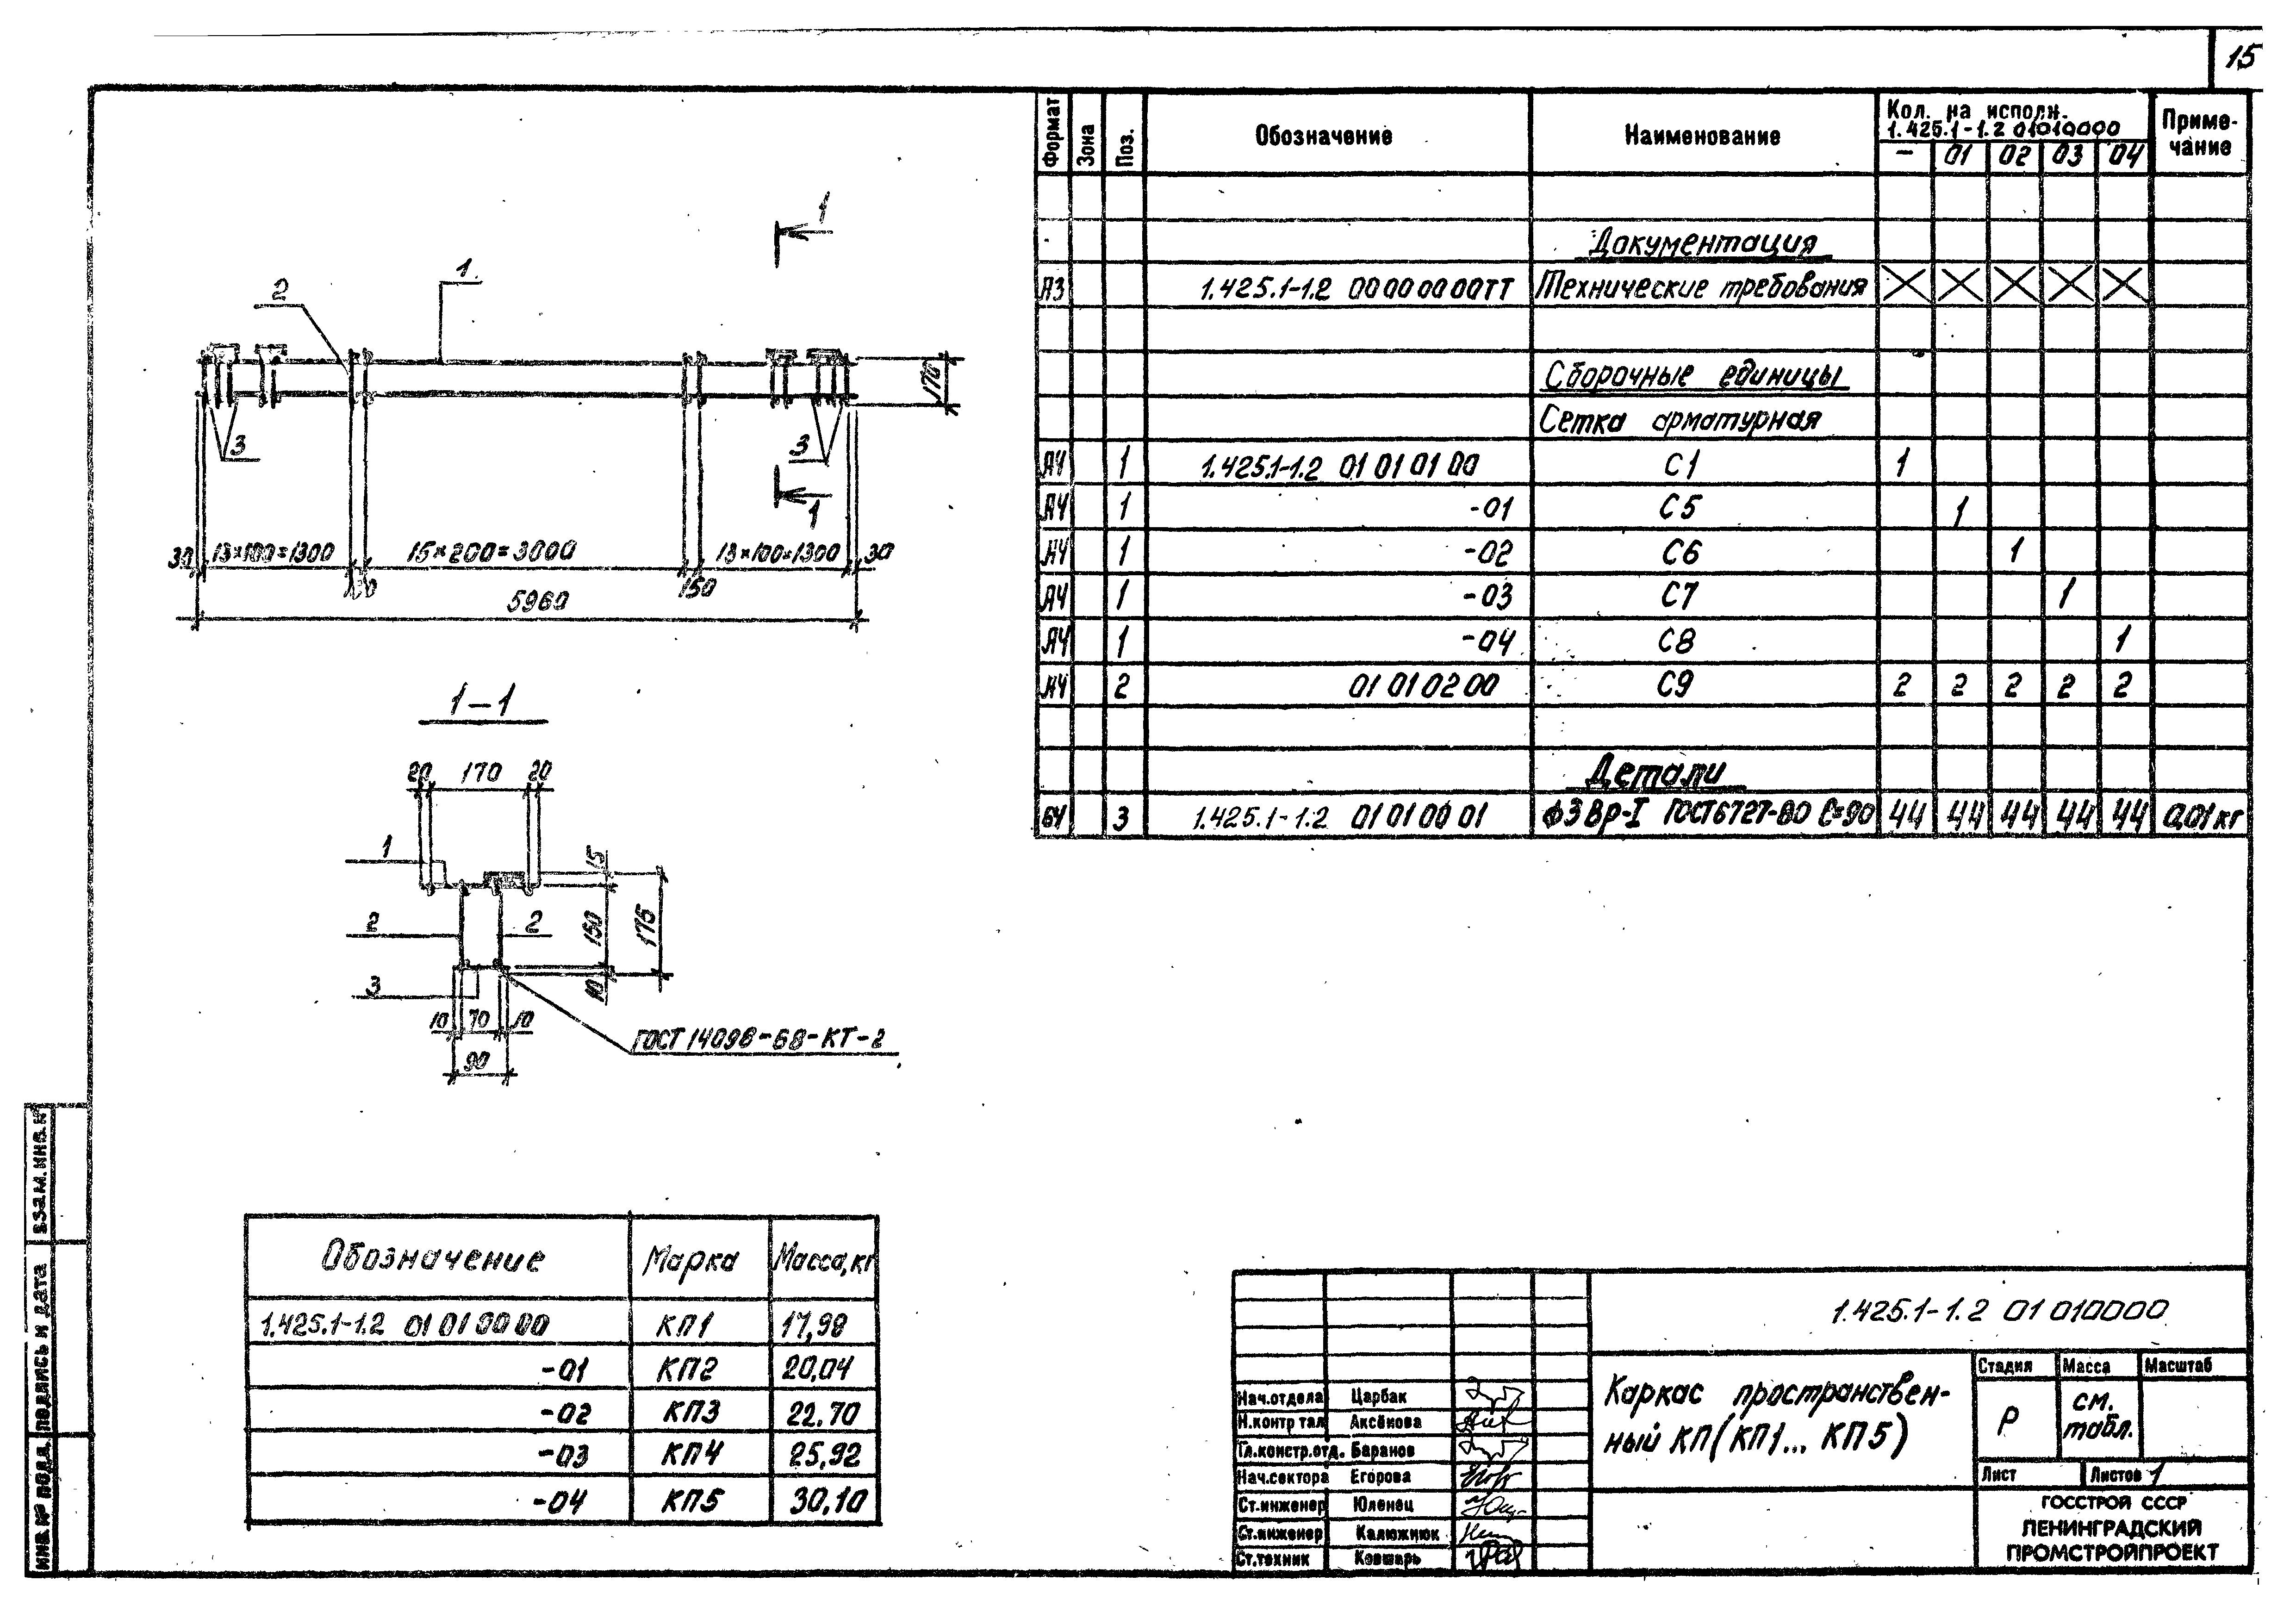 15
Формат Зона Поз. Обозначение Наименование Кол. на исполн. 1.425.1-1.2 01010000 Приме-чание
- 01 02 03 04
Документация
А3 1.425.1-1.2 00000000ТТ Технические требования
Сборочные единицы
Сетка арматурная
А4 1 1.425.1-1.2 01 01 01 00 С1 1
А4 1 -01 С5 1
А4 1 -02 С6 1
А4 1 -03 С7 1
А4 1 -04 С8 1
А4 2 01 01 02 00 С9 2 2 2 2 2
Детали
БЧ 3 1.425.1-1.2 01 01 00 01 ф3 Вр-I ГОСТ 6727-80 ℓ=90 44 44 44 44 44 0,01 кг
1
2 1
170
3 3
1
30 13×100=1300 15×200=3000 13×100=1300 30
150
5960
1-1
20 170 20
1
15
2 2
150
175
3
10
10 70 10
90
ГОСТ 14098-68-КТ-2
Обозначение Марка Масса,кг
1.425.1-1.2 01 01 00 00 КП1 17,98
-01 КП2 20,04
-02 КП3 22.70
-03 КП4 25,92
-04 КП5 30,10
1.425.1-1.2 01 010000
Каркас пространствен-
ный КП(КП1... КП5)
Стадия Масса Масштаб
Р см. табл.
Лист Листов 1
ГОССТРОЙ СССР
ЛЕНИНГРАДСКИЙ
ПРОМСТРОЙПРОЕКТ
Нач.отдела Царбак
Н.контр тал Аксёнова
Гл.констр.отд. Баранов
Нач.сектора Егорова
Ст.инженер Юленец
Ст.инженер Калюжнюк
Ст.техник Ковшарь
Взам.инв.№
Подпись и дата
Инв № подл.